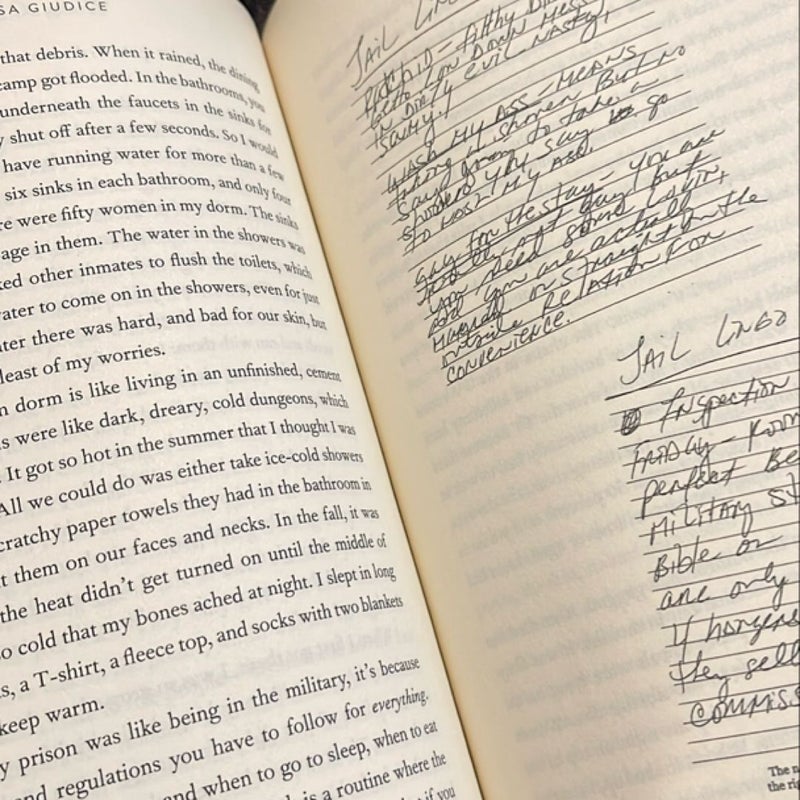 SA GIUDICE
that debris. When it rained, the dining
camp got flooded. In the bathrooms, you
underneath the faucets in the sinks for
y shut off after a few seconds. So I would
have running water for more than a few
six sinks in each bathroom, and only four
re were fifty women in my dorm. The sinks
age in them. The water in the showers was
ked other inmates to flush the toilets, which
ater to come on in the showers, even for just
ter there was hard, and bad for our skin, but
least of my worries.
n dorm is like living in an unfinished, cement
s were like dark, dreary, cold dungeons, which
. It got so hot in the summer that I thought I was
All we could do was either take ice-cold showers
cratchy paper towels they had in the bathroom in
t them on our faces and necks. In the fall, it was
the heat didn't get turned on until the middle of
o cold that my bones ached at night. I slept in long
s, a T-shirt, a fleece top, and socks with two blankets
keep warm.
y prison was like being in the military, it's because
nd regulations you have to follow for everything.
and when to go to sleep, when to eat
is a routine where the
if you
JAIL LINGO
Filthy
Low Down
Dirty evil Nasty,
WASH MY ASS - MEANS
taking a shower. But No
going to take a
showers they say go
to wash my ASS.
Gay for the stay - you are
really not gay But
you need some lovin,
and you are actually
married or straight on the
outside Relation for
CONVENIENCE.
JAIL LINGO
Inspection
FRIDAY - ROOM
perfect Be
Military St
Bible or
are only
If hangers
they sell
COMMISS
The n
the rig